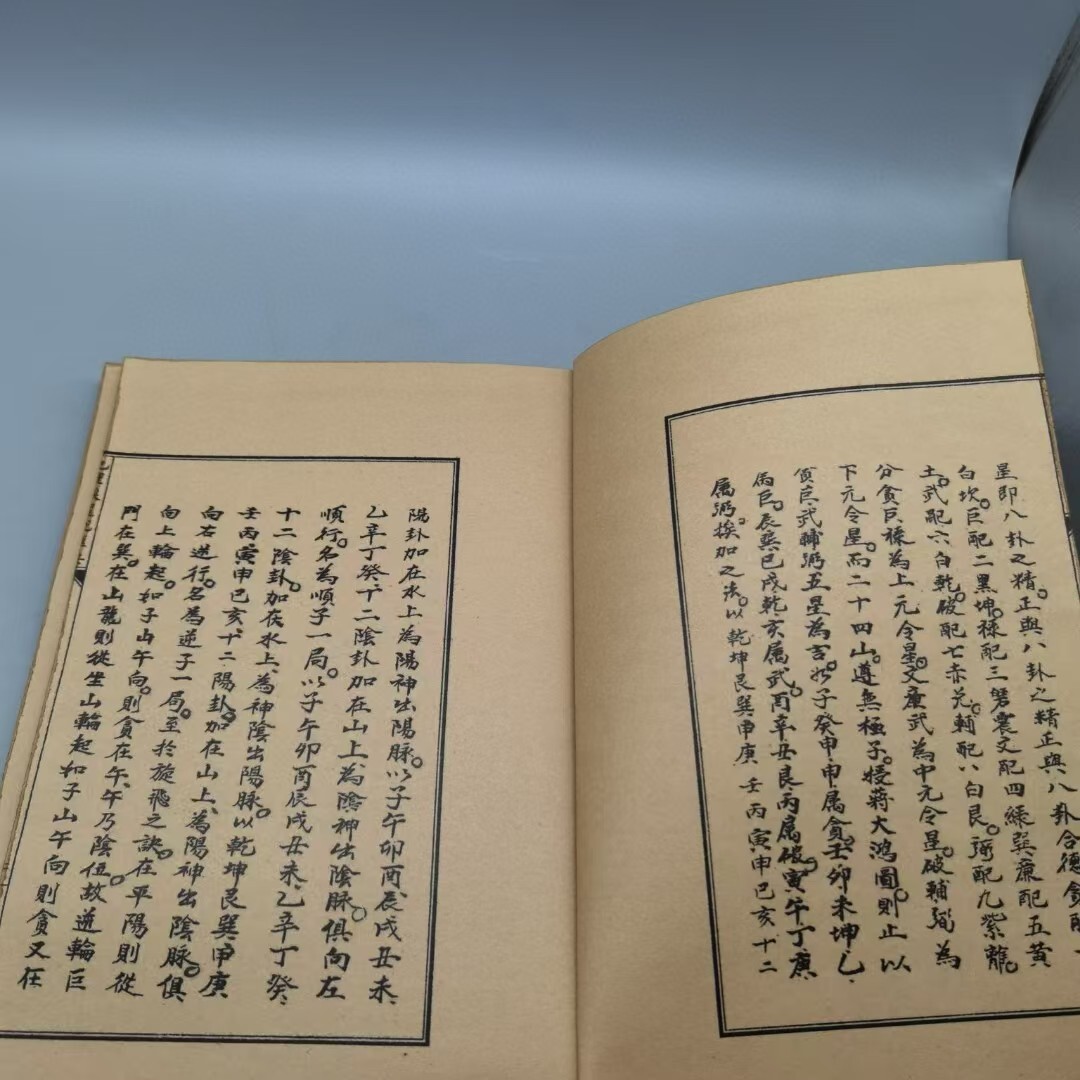 星即八卦之精正與八卦之精正與八卦合德貪配一
白坎巨配二黑坤祿配三碧震文配四綠巽廉配五黃
土武配六白乾破配七赤兌輔配八白艮弼配九紫離
分貪巨祿為上元令星文廉武為中元令星破輔弼為
下元令星而二十四山遵無極子授蔣大鴻圖則止以
貪巨武輔弼五星為言如子癸甲申屬貪壬卯未坤乙
屬巨辰巽巳戌乾亥屬武丙辛丑艮丙屬破寅午丁庚
属弼挨加之法以乾坤艮巽甲庚壬丙寅申巳亥十二
陽卦加在水上為陽神出陽脉以子午卯酉辰戌丑未
乙辛丁癸十二陰卦加在山上為陰神出陰脉俱向左
順行名為順子一局以子午卯酉辰戌丑未乙辛丁癸
十二陰卦加在水上為神陰出陽脉以乾坤艮巽甲庚
壬丙寅申巳亥十二陽卦加在山上為陽神出陰脉俱
向右逆行名為逆子一局至於旋飛之訣在平陽則從
向上輪起如子山午向則貪在午午乃陰位故逆輪巨
門在巽在山龍則從坐山輪起如子山午向則貪又在